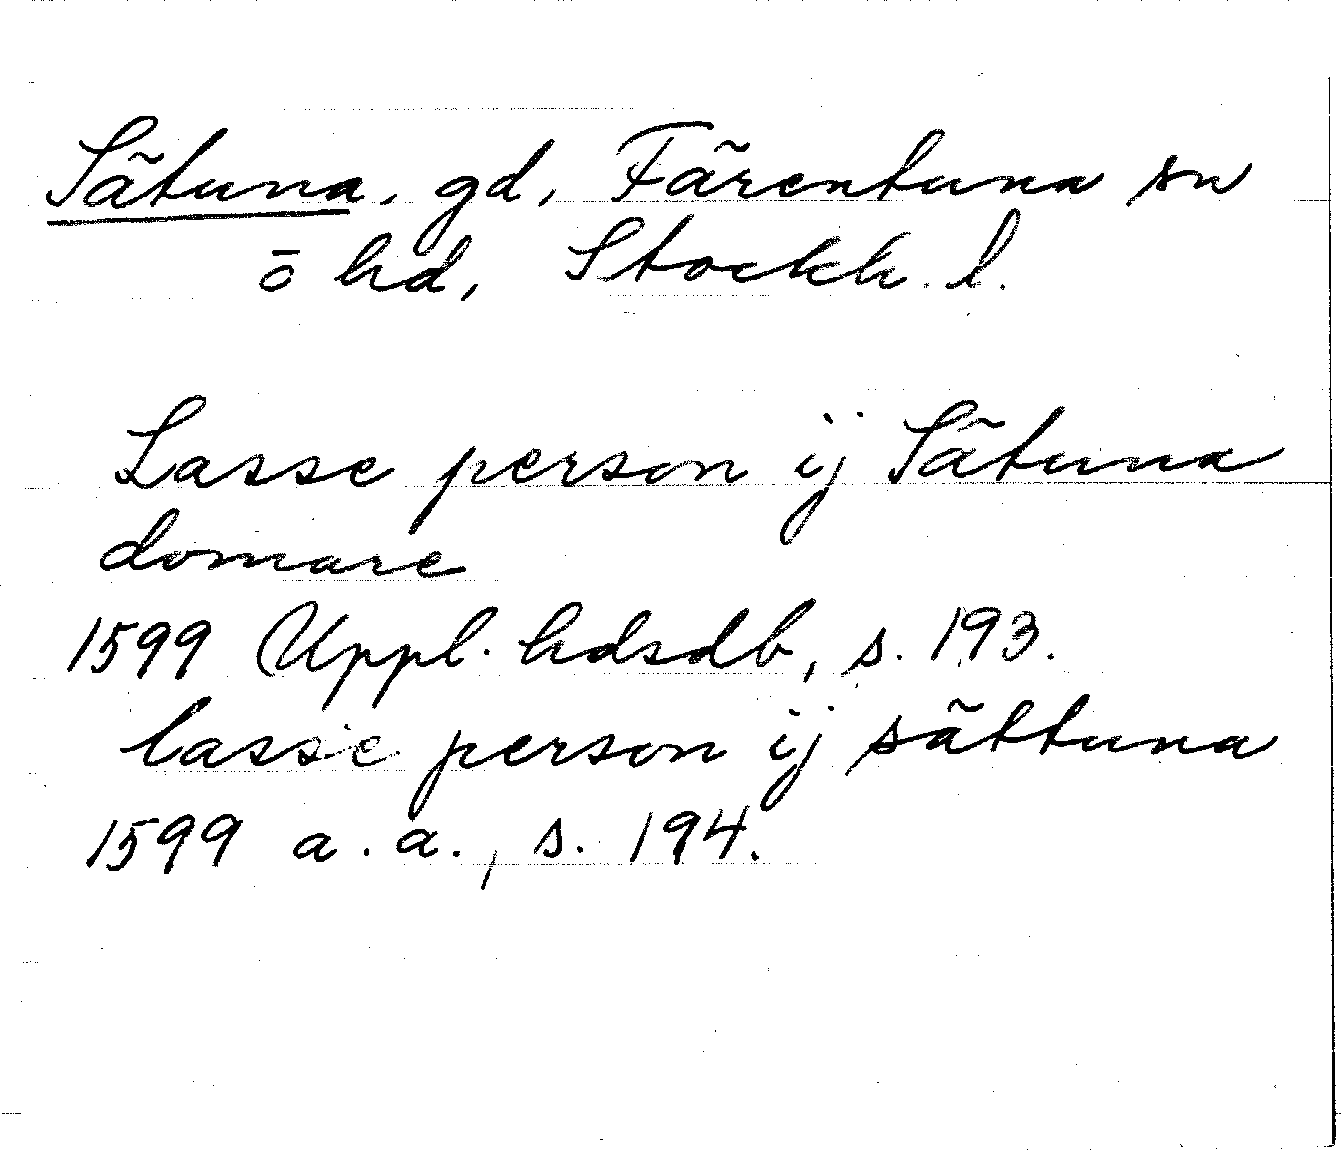 Sätuna, gd, Färentuna sn
o hd, Stockh. l.
Lasse person ij Sätuna
domare
1599 Uppl. hdsdb, s. 193.
lasse person ij sättuna
1599 a.a., s. 194.